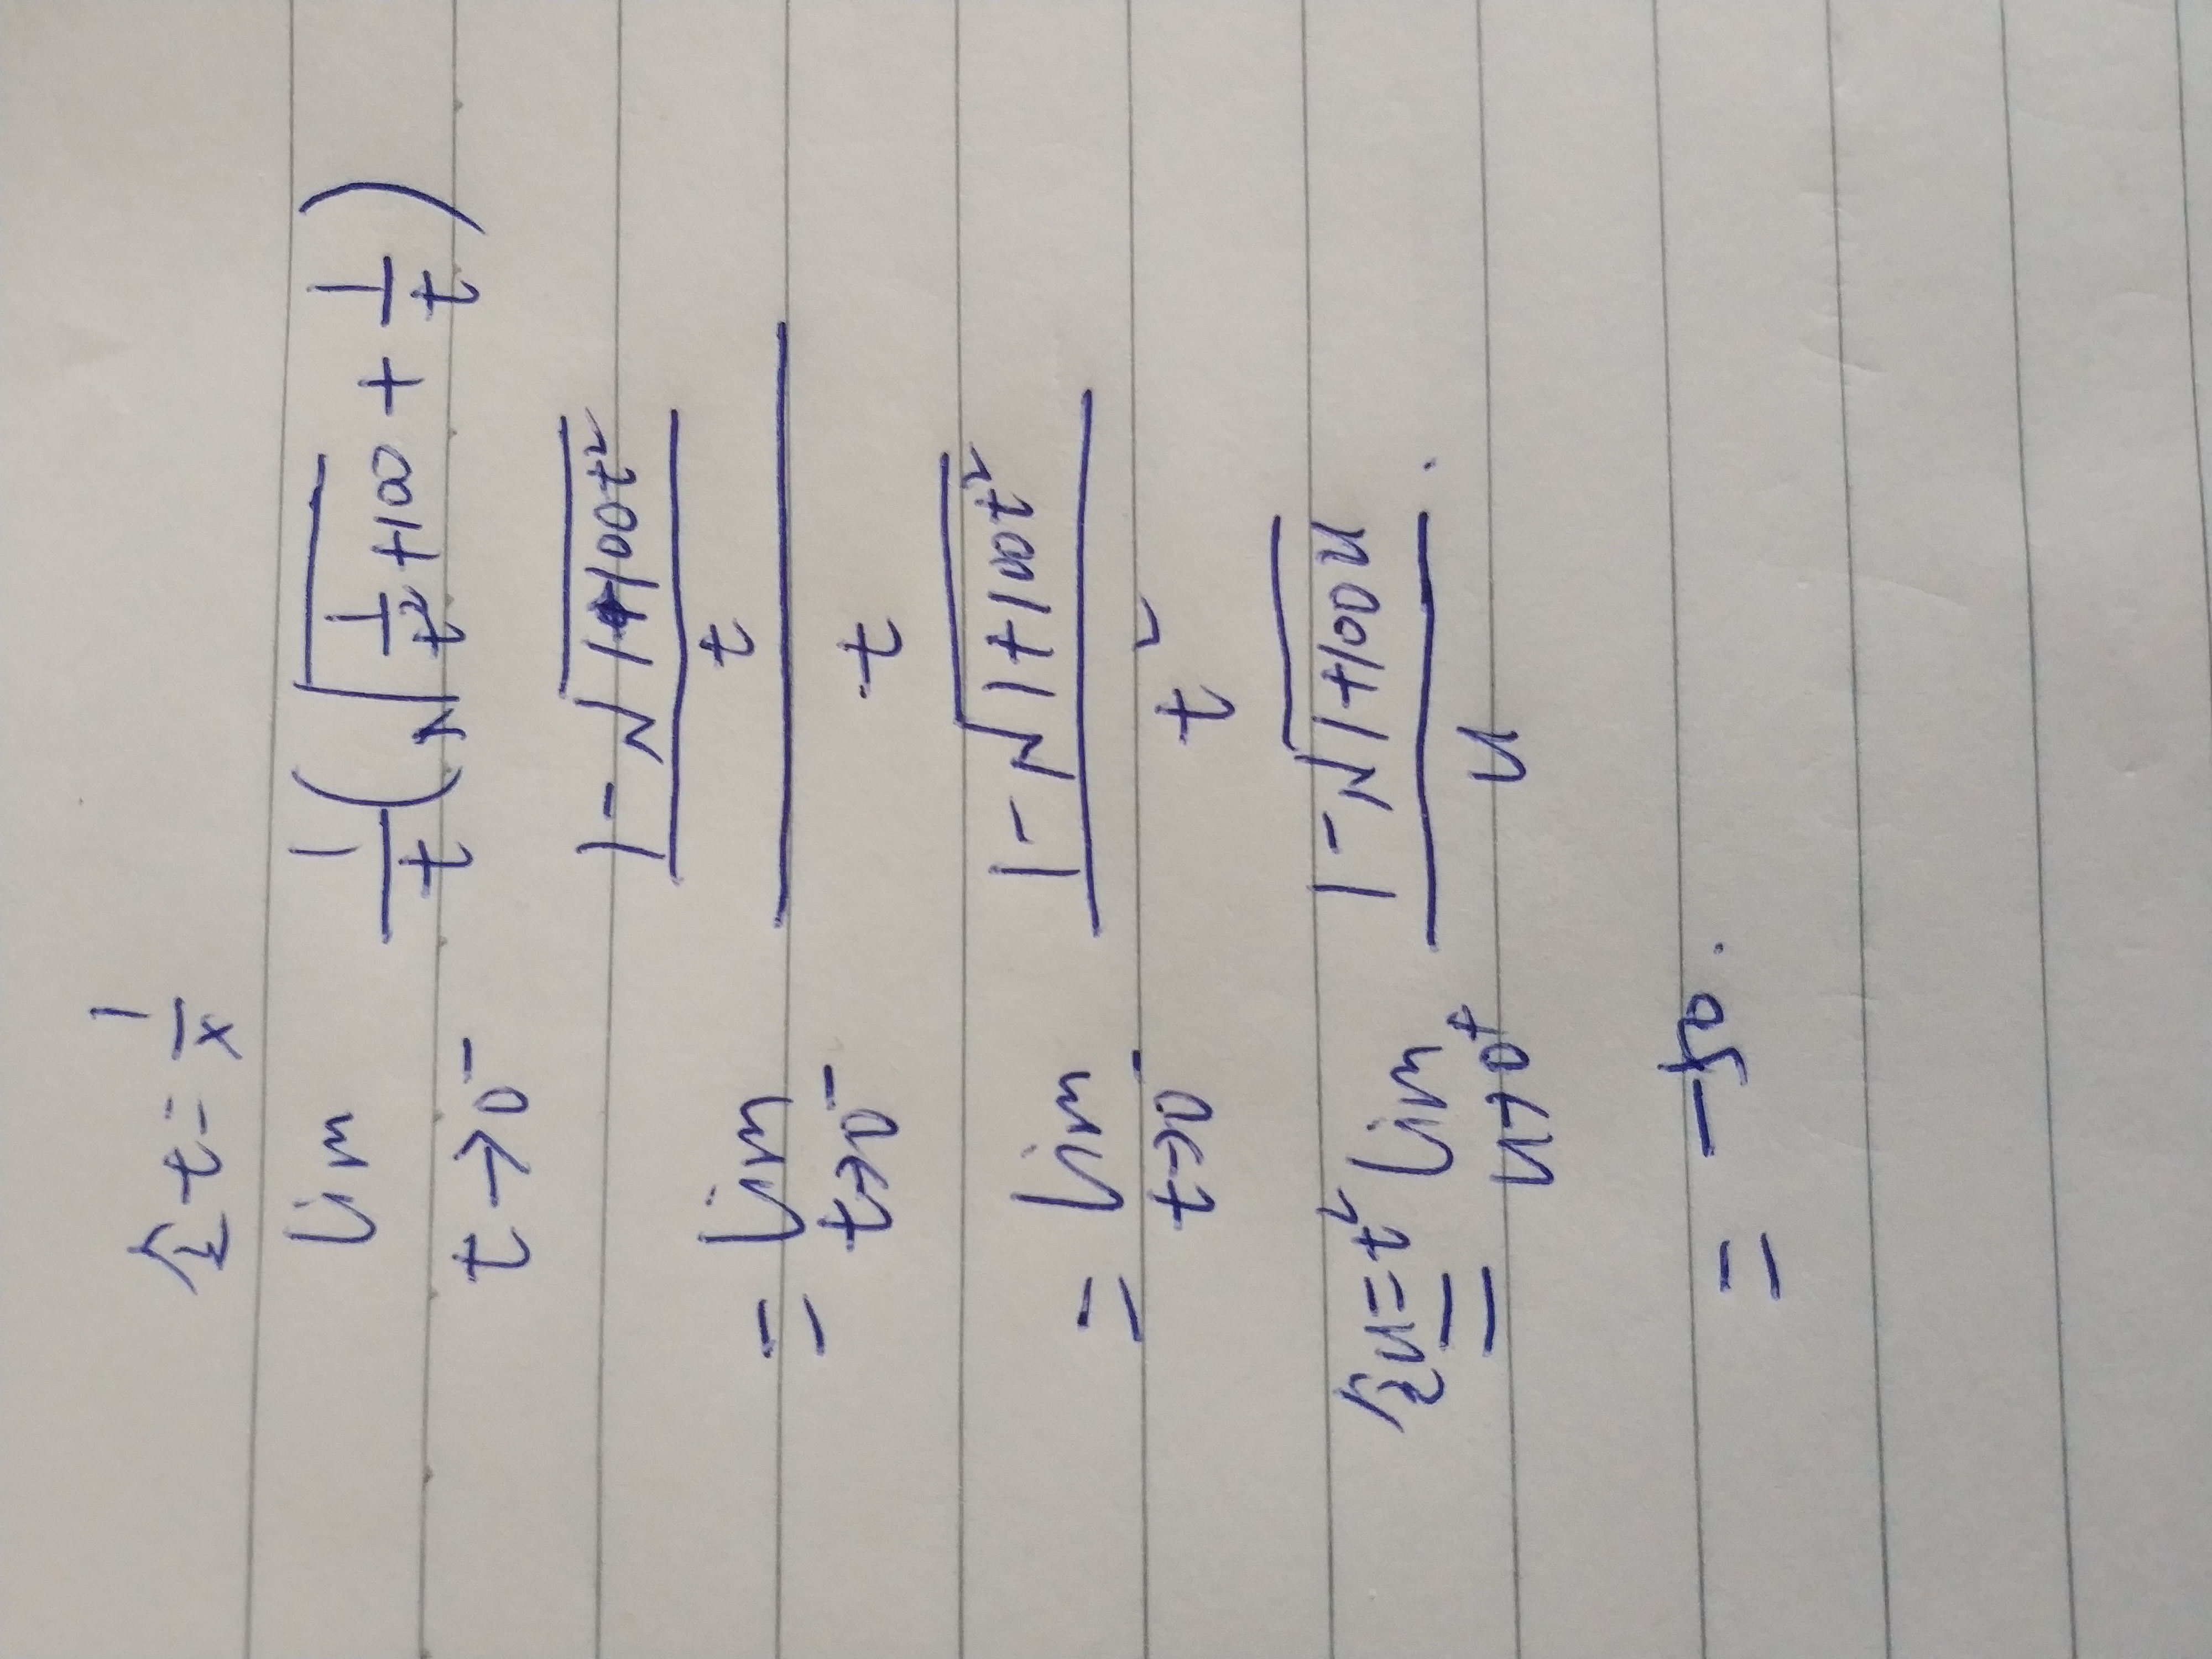 令 t = 1/x
lim_{t→0⁻} 1/t (√(1/t² + 100) + 1/t)
= lim_{t→0⁻} ((1 - √(1+100t²))/t)/t
= lim_{t→0⁻} (1 - √(1+100t²))/t²
令u=t² = lim_{u→0⁺} (1 - √(1+100u))/u
= -50.